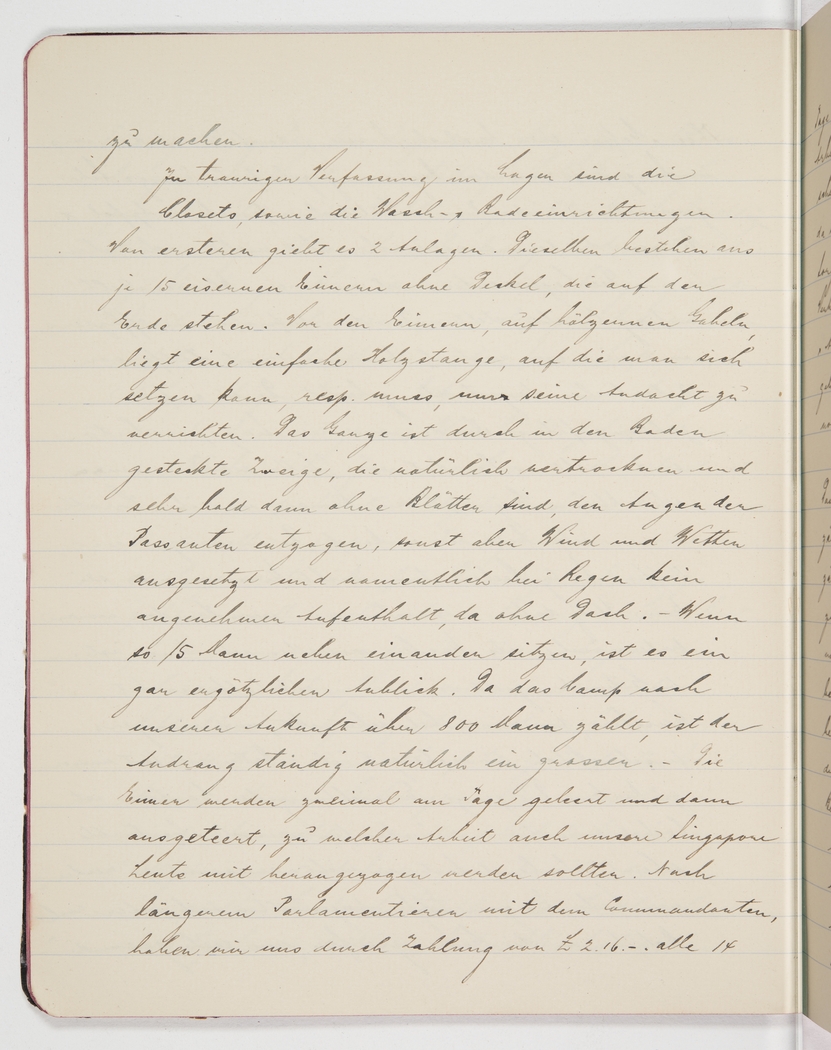 zu machen.
In trauriger Verfassung im Lager sind die
Closets, sowie die Wasch- & Badeeinrichtungen.
Von ersteren giebt es 2 Anlagen. Dieselben bestehen aus
je 15 eisernen Eimern ohne Deckel, die auf der
Erde stehen. Vor den Eimern, auf hölzernen Gabeln,
liegt eine einfache Holzstange, auf die man sich
setzen kann, resp. muss, um seine Andacht zu
verrichten. Das Ganze ist durch in den Boden
gesteckte Zweige, die natürlich vertrocknen und
sehr bald dann ohne Blätter sind, den Augen der
Passanten entzogen, sonst aber Wind und Wetter
ausgesetzt und namentlich bei Regen kein
angenehmer Aufenthalt, da ohne Dach. - Wenn
so 15 Mann neben einander sitzen, ist es ein
gar ergötzlicher Anblick. Da das Camp nach
unserer Ankunft über 800 Mann zählt, ist der
Andrang ständig natürlich ein grosser. - Die
Eimer werden zweimal am Tage geleert und dann
ausgeteert, zu welcher Arbeit auch unsere Singapore
Leute mit herangezogen werden sollten. Nach
längerem Parlamentieren mit dem Commandanten,
haben wir uns durch Zahlung von £ 2.16.-. alle 14